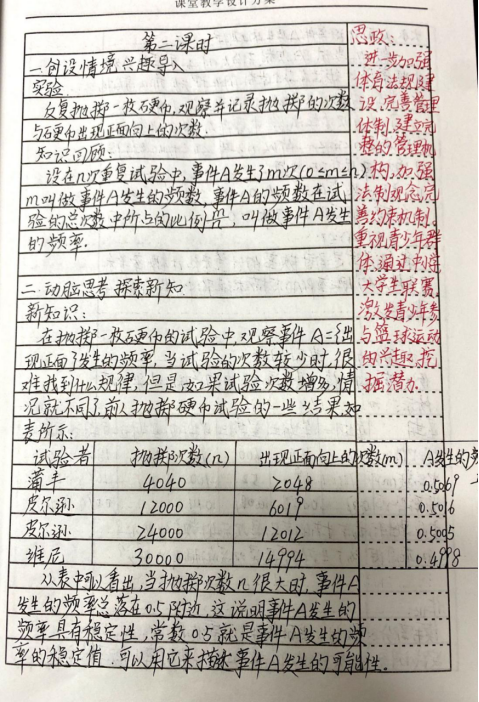 课堂教学设计方案
第二课时
一.创设情境 兴趣导入
实验
反复抛掷一枚硬币,观察并记录抛掷的次数
与硬币出现正面向上的次数.
知识回顾:
设在n次重复试验中,事件A发生了m次(0≤m≤n)
m叫做事件A发生的频数,事件A的频数在试
验的总次数中所占的比例m/n,叫做事件A发生
的频率.
二.动脑思考 探索新知
新知识:
在抛掷一枚硬币的试验中,观察事件A={出
现正面}发生的频率,当试验的次数较少时,很
难找到什么规律,但是如果试验次数增多,情
况就不同了.前人抛掷硬币试验的一些结果如
表所示:
试验者 抛掷次数(n) 出现正面向上的次数(m) A发生的频
蒲丰 4040 2048 0.5069
皮尔逊 12000 6019 0.5016
皮尔逊 24000 12012 0.5005
维尼 30000 14994 0.4998
从表中可以看出,当抛掷次数n很大时,事件A
发生的频率总落在0.5附近,这说明事件A发生的
频率具有稳定性,常数0.5就是事件A发生的频
率的稳定值,可以用它来描述事件A发生的可能性.
思政:
进一步加强
体育法规建
设,完善管理
体制,建立完
整的管理机
构,加强
法制观念,完
善约束机制.
重视青少年群
体,通过中、
大学生联赛
激发青少年参
与篮球运动
的兴趣,挖
掘潜力.